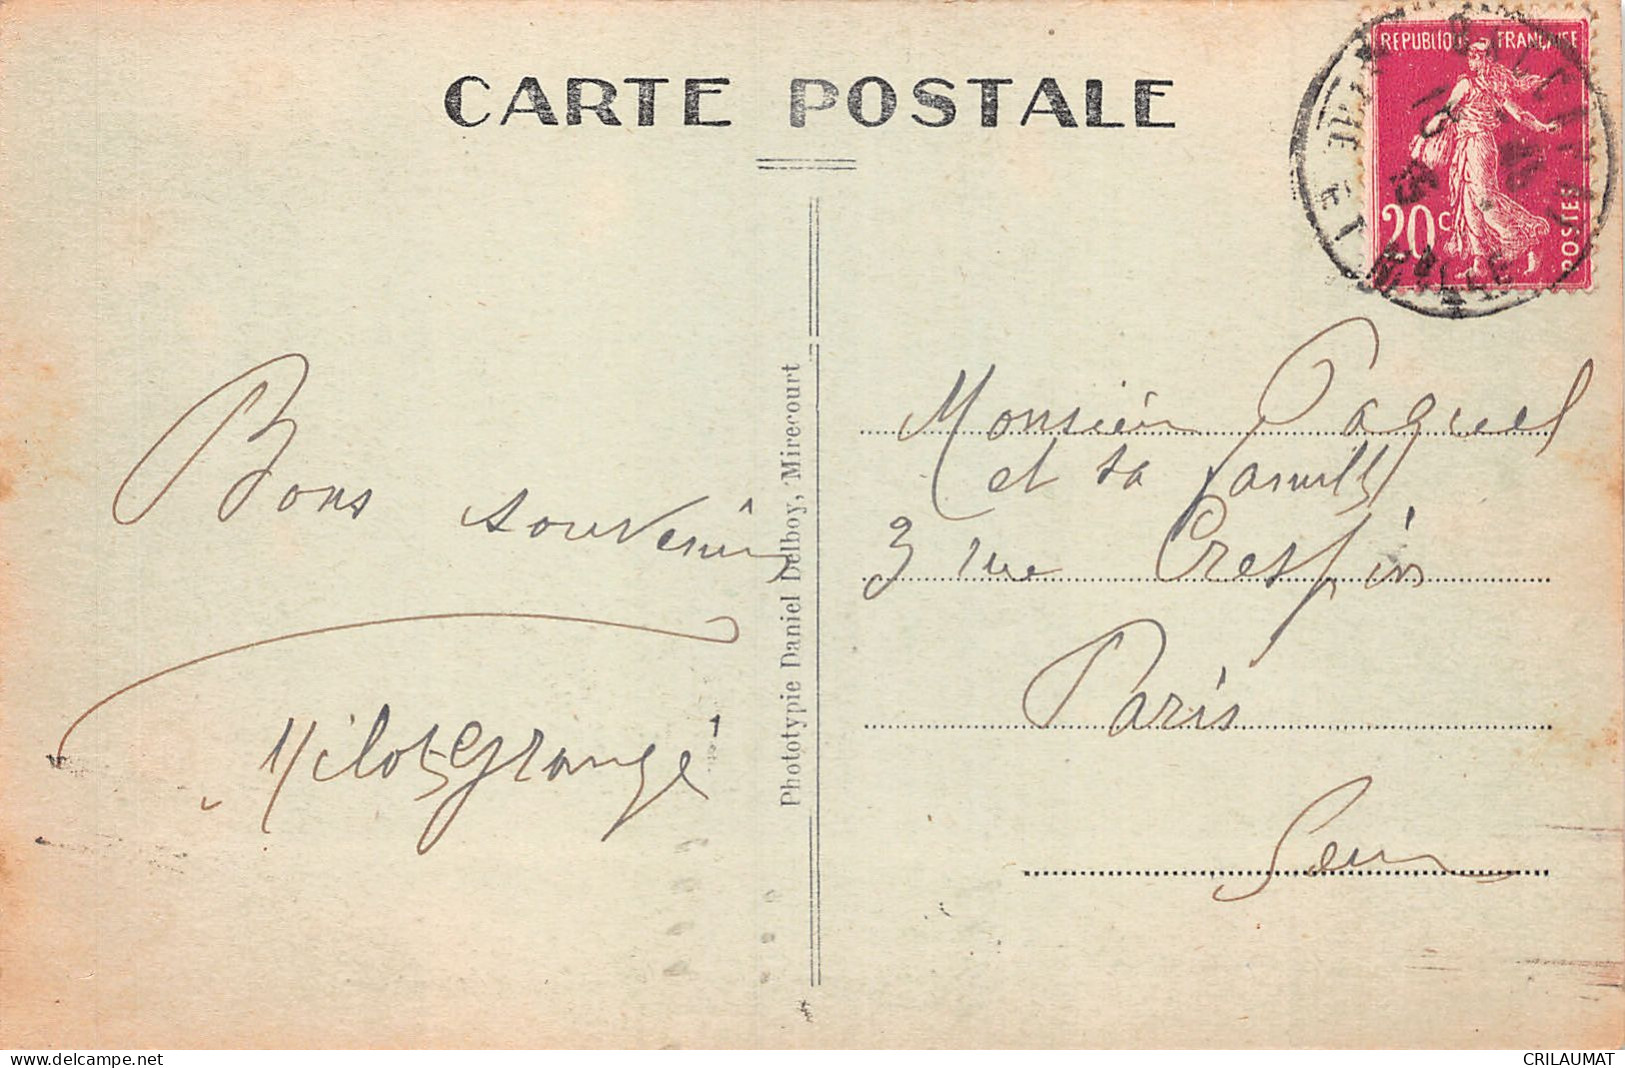 CARTE POSTALE
REPUBLIQUE FRANÇAISE
20c
POSTES
Bons souvenirs
Milot Grangé
Phototypie Daniel Delboy, Mirecourt
Monsieur Paquel
et sa famille
3 rue Crespin
Paris
Seine
delcampe.net
CRILAUMAT